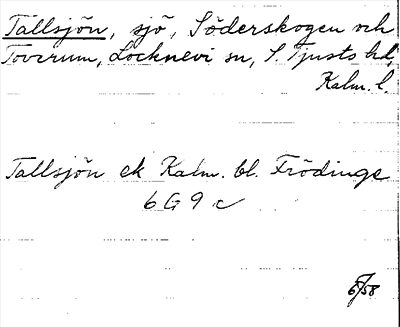 Tallsjön, sjö, Söderskogen och
Toverum, Locknevi sn, S. Tjusts hd,
Kalm. l.
Tallsjön ek Kalm. bl. Frödinge
6 G 9 c
6/58